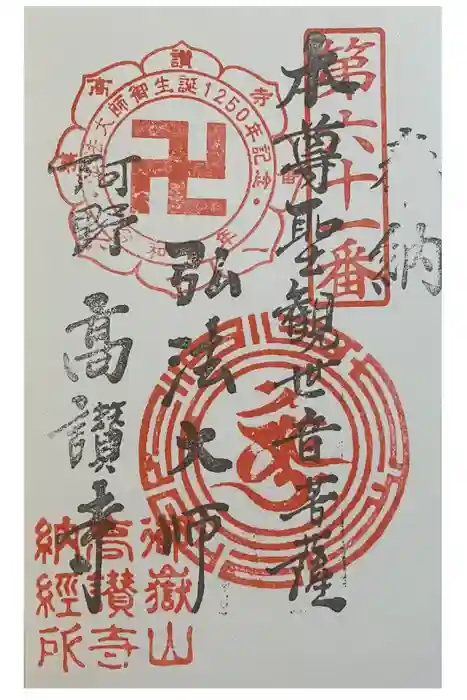 奉納
第六十一番
本尊聖観世音菩薩
弘法大師
阿野
高讃寺
弘法大師御生誕1250年記念・
高讃寺
御嶽山
高讃寺
納経所